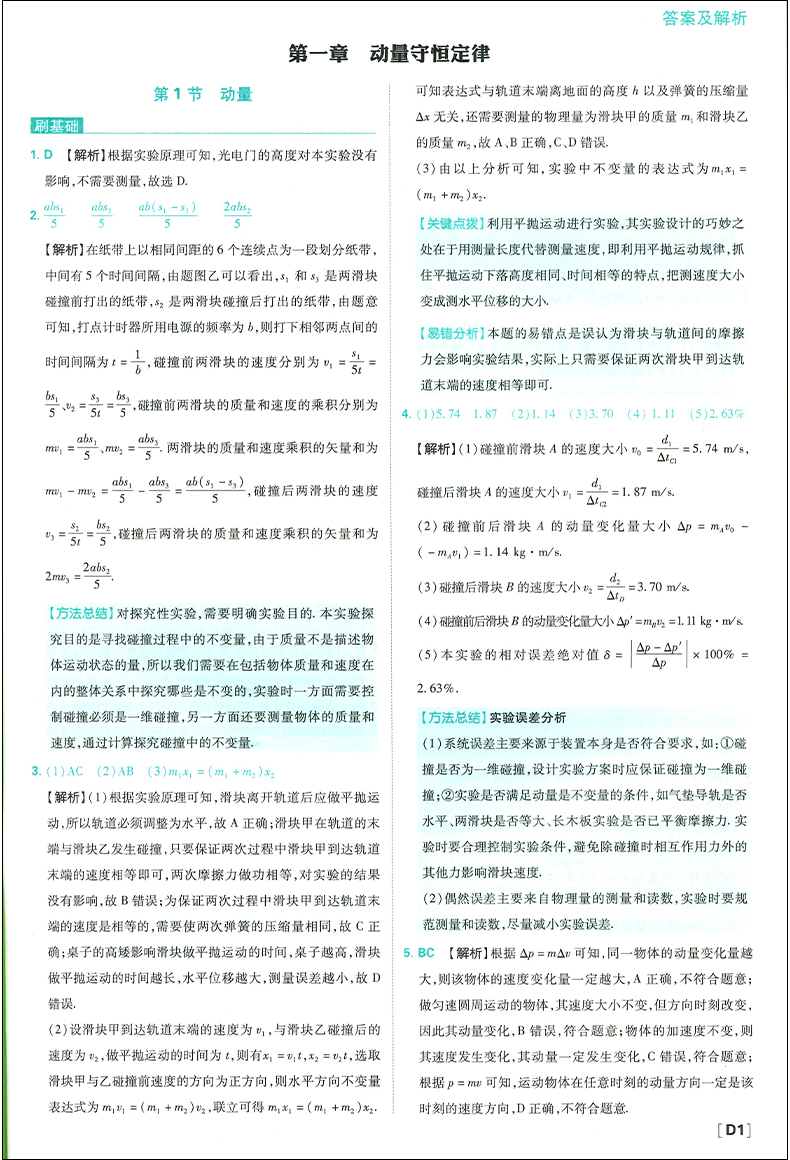 答案及解析
第一章 动量守恒定律
第1节 动量
刷基础
1. D 【解析】根据实验原理可知,光电门的高度对本实验没有
影响,不需要测量,故选 D.
2. abs₁/5 abs₃/5 ab(s₁-s₃)/5 2abs₂/5
【解析】在纸带上以相同间距的 6 个连续点为一段划分纸带,
中间有 5 个时间间隔,由题图乙可以看出,s₁ 和 s₃ 是两滑块
碰撞前打出的纸带,s₂ 是两滑块碰撞后打出的纸带,由题意
可知,打点计时器所用电源的频率为 b,则打下相邻两点间的
时间间隔为 t = 1/b,碰撞前两滑块的速度分别为 v₁ = s₁/5t =
bs₁/5、v₂ = s₃/5t = bs₃/5,碰撞前两滑块的质量和速度的乘积分别为
mv₁ = abs₁/5、mv₂ = abs₃/5. 两滑块的质量和速度乘积的矢量和为
mv₁ - mv₂ = abs₁/5 - abs₃/5 = ab(s₁-s₃)/5,碰撞后两滑块的速度
v₃ = s₂/5t = bs₂/5,碰撞后两滑块的质量和速度乘积的矢量和为
2mv₃ = 2abs₂/5.
【方法总结】对探究性实验,需要明确实验目的. 本实验探
究目的是寻找碰撞过程中的不变量,由于质量不是描述物
体运动状态的量,所以我们需要在包括物体质量和速度在
内的整体关系中探究哪些是不变的,实验时一方面需要控
制碰撞必须是一维碰撞,另一方面还要测量物体的质量和
速度,通过计算探究碰撞中的不变量.
3. (1)AC (2)AB (3)m₁x₁ = (m₁ + m₂)x₂
【解析】(1)根据实验原理可知,滑块离开轨道后应做平抛运
动,所以轨道必须调整为水平,故 A 正确;滑块甲在轨道的末
端与滑块乙发生碰撞,只要保证两次过程中滑块甲到达轨道
末端的速度相等即可,两次摩擦力做功相等,对实验的结果
没有影响,故 B 错误;为保证两次过程中滑块甲到达轨道末
端的速度是相等的,需要使两次弹簧的压缩量相同,故 C 正
确;桌子的高矮影响滑块做平抛运动的时间,桌子越高,滑块
做平抛运动的时间越长,水平位移越大,测量误差越小,故 D
错误.
(2)设滑块甲到达轨道末端的速度为 v₁,与滑块乙碰撞后的
速度为 v₂,做平抛运动的时间为 t,则有x₁ = v₁t,x₂ = v₂t,选取
滑块甲与乙碰撞前速度的方向为正方向,则水平方向不变量
表达式为 m₁v₁ = (m₁ + m₂)v₂,联立可得 m₁x₁ = (m₁ + m₂)x₂.
可知表达式与轨道末端离地面的高度 h 以及弹簧的压缩量
Δx 无关,还需要测量的物理量为滑块甲的质量 m₁和滑块乙
的质量 m₂,故 A、B 正确,C、D 错误.
(3)由以上分析可知,实验中不变量的表达式为m₁x₁ =
(m₁ + m₂)x₂.
【关键点拨】利用平抛运动进行实验,其实验设计的巧妙之
处在于用测量长度代替测量速度,即利用平抛运动规律,抓
住平抛运动下落高度相同、时间相等的特点,把测速度大小
变成测水平位移的大小.
【易错分析】本题的易错点是误认为滑块与轨道间的摩擦
力会影响实验结果,实际上只需要保证两次滑块甲到达轨
道末端的速度相等即可.
4. (1)5.74 1.87 (2)1.14 (3)3.70 (4)1.11 (5)2.63%
【解析】(1)碰撞前滑块 A 的速度大小 v₀ = d₁/Δt_C1 = 5.74 m/s,
碰撞后滑块 A 的速度大小 v₁ = d₁/Δt_C2 = 1.87 m/s.
(2)碰撞前后滑块 A 的动量变化量大小 Δp = m_Av₀ -
(-m_Av₁) = 1.14 kg·m/s.
(3)碰撞后滑块 B 的速度大小 v₂ = d₂/Δt_D = 3.70 m/s.
(4)碰撞前后滑块 B 的动量变化量大小 Δp′ = m_Bv₂ = 1.11 kg·m/s.
(5)本实验的相对误差绝对值 δ = |(Δp-Δp′)/Δp| × 100% =
2.63%.
【方法总结】实验误差分析
(1)系统误差主要来源于装置本身是否符合要求,如:①碰
撞是否为一维碰撞,设计实验方案时应保证碰撞为一维碰
撞;②实验是否满足动量是不变量的条件,如气垫导轨是否
水平、两滑块是否等大、长木板实验是否已平衡摩擦力. 实
验时要合理控制实验条件,避免除碰撞时相互作用力外的
其他力影响滑块速度.
(2)偶然误差主要来自物理量的测量和读数,实验时要规
范测量和读数,尽量减小实验误差.
5. BC 【解析】根据 Δp = mΔv 可知,同一物体的动量变化量越
大,则该物体的速度变化量一定越大,A 正确,不符合题意;
做匀速圆周运动的物体,其速度大小不变,但方向时刻改变,
因此其动量变化,B 错误,符合题意;物体的加速度不变,则
其速度发生变化,其动量一定发生变化,C 错误,符合题意;
根据 p = mv 可知,运动物体在任意时刻的动量方向一定是该
时刻的速度方向,D 正确,不符合题意.
[D1]